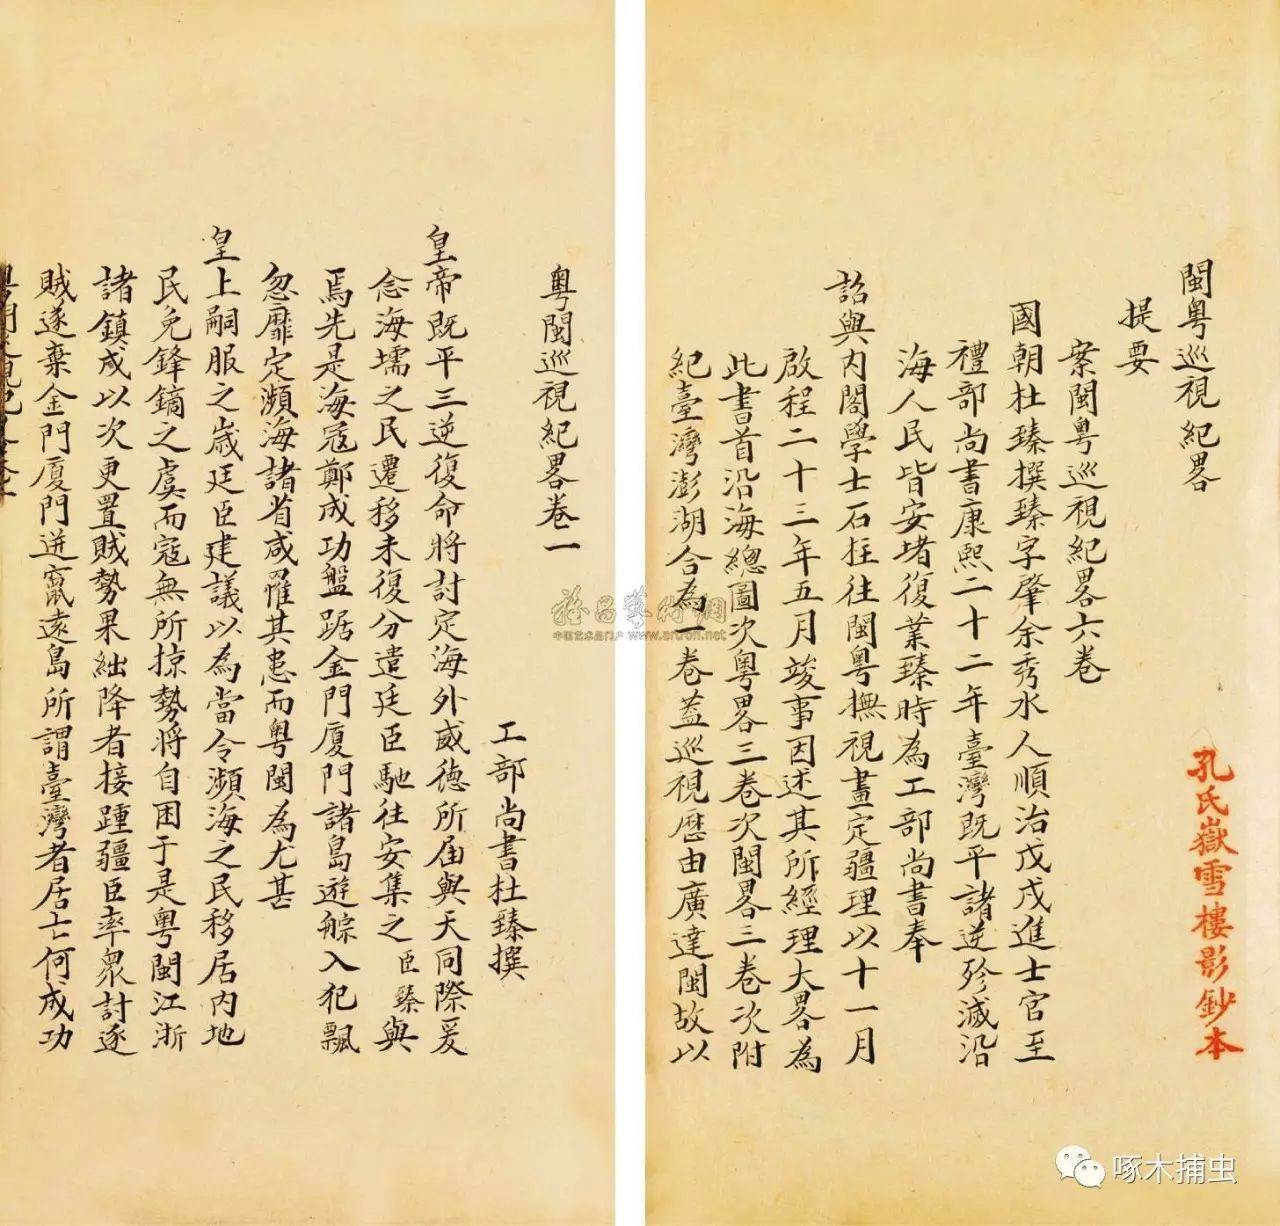 閩粤巡視紀畧
提要
案閩粤巡視紀畧六卷
國朝杜臻撰臻字肇余秀水人順治戊戌進士官至
禮部尚書康熙二十二年臺灣既平諸逆殄滅沿
海人民皆安堵復業臻時為工部尚書奉
詔與内閣學士石柱往閩粤撫視畫定疆理以十一月
啟程二十三年五月竣事因述其所經理大畧為
此書首沿海總圖次粤畧三卷次閩畧三卷次附
紀臺灣澎湖合為一卷蓋巡視歷由廣達閩故以
孔氏嶽雪樓影鈔本
粤閩巡視紀畧卷一
工部尚書杜臻撰
皇帝既平三逆復命將討定海外威德所届與天同際爰
念海壖之民遷移未復分遣廷臣馳往安集之臣臻與
焉先是海寇鄭成功盤踞金門厦門諸島遊䑸入犯飄
忽靡定瀕海諸省咸罹其患而粤閩為尤甚
皇上嗣服之歲廷臣建議以為當令瀕海之民移居内地
民免鋒鏑之虞而寇無所掠勢將自困于是粤閩江浙
諸鎮戍以次更置賊勢果絀降者接踵疆臣率衆討逐
賊遂棄金門厦門迸竄遠島所謂臺灣者居亡何成功
雅昌藝術網
中国艺术品门户 www.artron.net
啄木捕虫